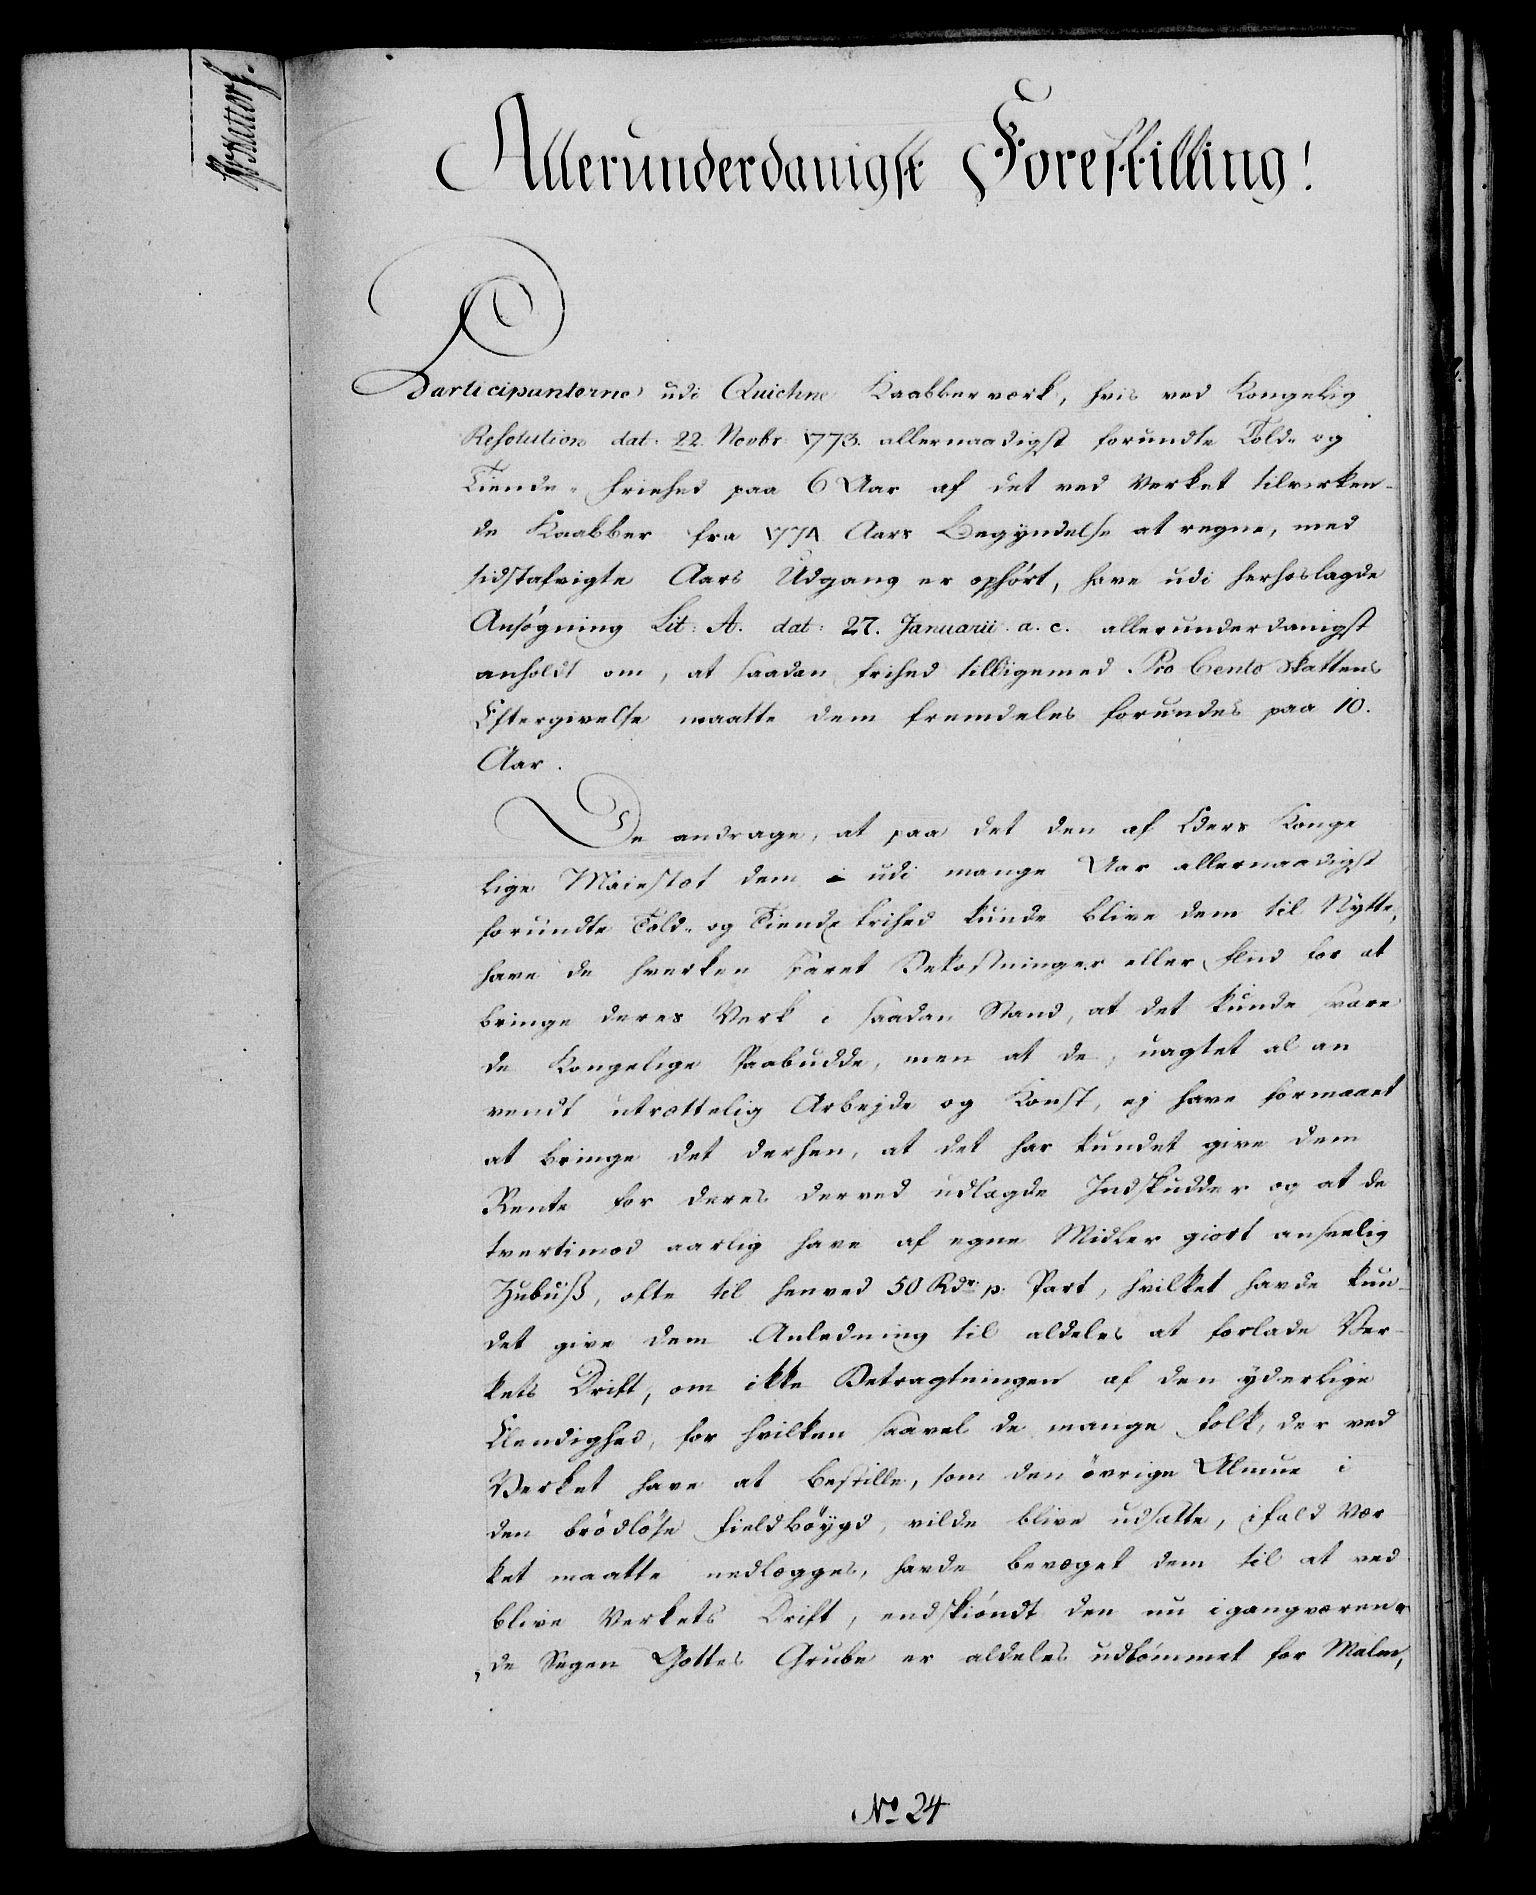 Allerunderdanigst Forestilling!
Participanterne udi Quichne Kaabberverk, hvis ved Kongelig
Resolution dat. 22 Novbr 1773. allernaadigst forundte Told- og
Tiende-Friehed paa 6 Aar af det ved Verket tilvirken-
de Kaabber fra 1774 Aars Begyndelse at regne, med
sidstafvigte Aars Udgang er ophört, have udi herhoslagde
Ansögning Lit: A. dat: 27. Januarii a. c. allerunderdanigst
anholdt om, at saadan frihed tilligemed Pro Cento Skattens
Eftergivelse maatte dem fremdeles forundes paa 10.
Aar.
De andrage, at paa det den af Eders Konge
lige Maiestæt dem udi mange Aar allernaadigst
forundte Told- og Tiende frihed kunde blive dem til Nytte,
have de hverken sparet Bekostninger eller Fliid for at
bringe deres Verk i saadan Stand, at det kunde svare
de Kongelige Paabudde, men at de, uagtet al an
vendt utrættelig Arbejde og Konst, ej have formaaet
at bringe det derhen, at det har kundet give dem
Rente for deres derved udlagde Indskudder og at de
tvertimod aarlig have af egne Midler giort anseelig
Zubuß, ofte til henved 50 Rdr p. Part, hvilket havde kun-
det give dem Anledning til aldeles at forlade Ver-
kets Drift, om ikke Betragtningen af den yderlige
Elendighed, for hvilken saavel de mange Folk, der ved
Verket have at bestille, som den övrige Almue i
den brödlöse Fieldböygd, vilde blive udsatte, ifald Vær
ket maatte nedlægges, havde bevæget dem til at ved
blive Verkets Drift, endskiöndt den nu igangværen-
de Segen Gottes Grube er aldeles udtömmet for Malm,
No 24